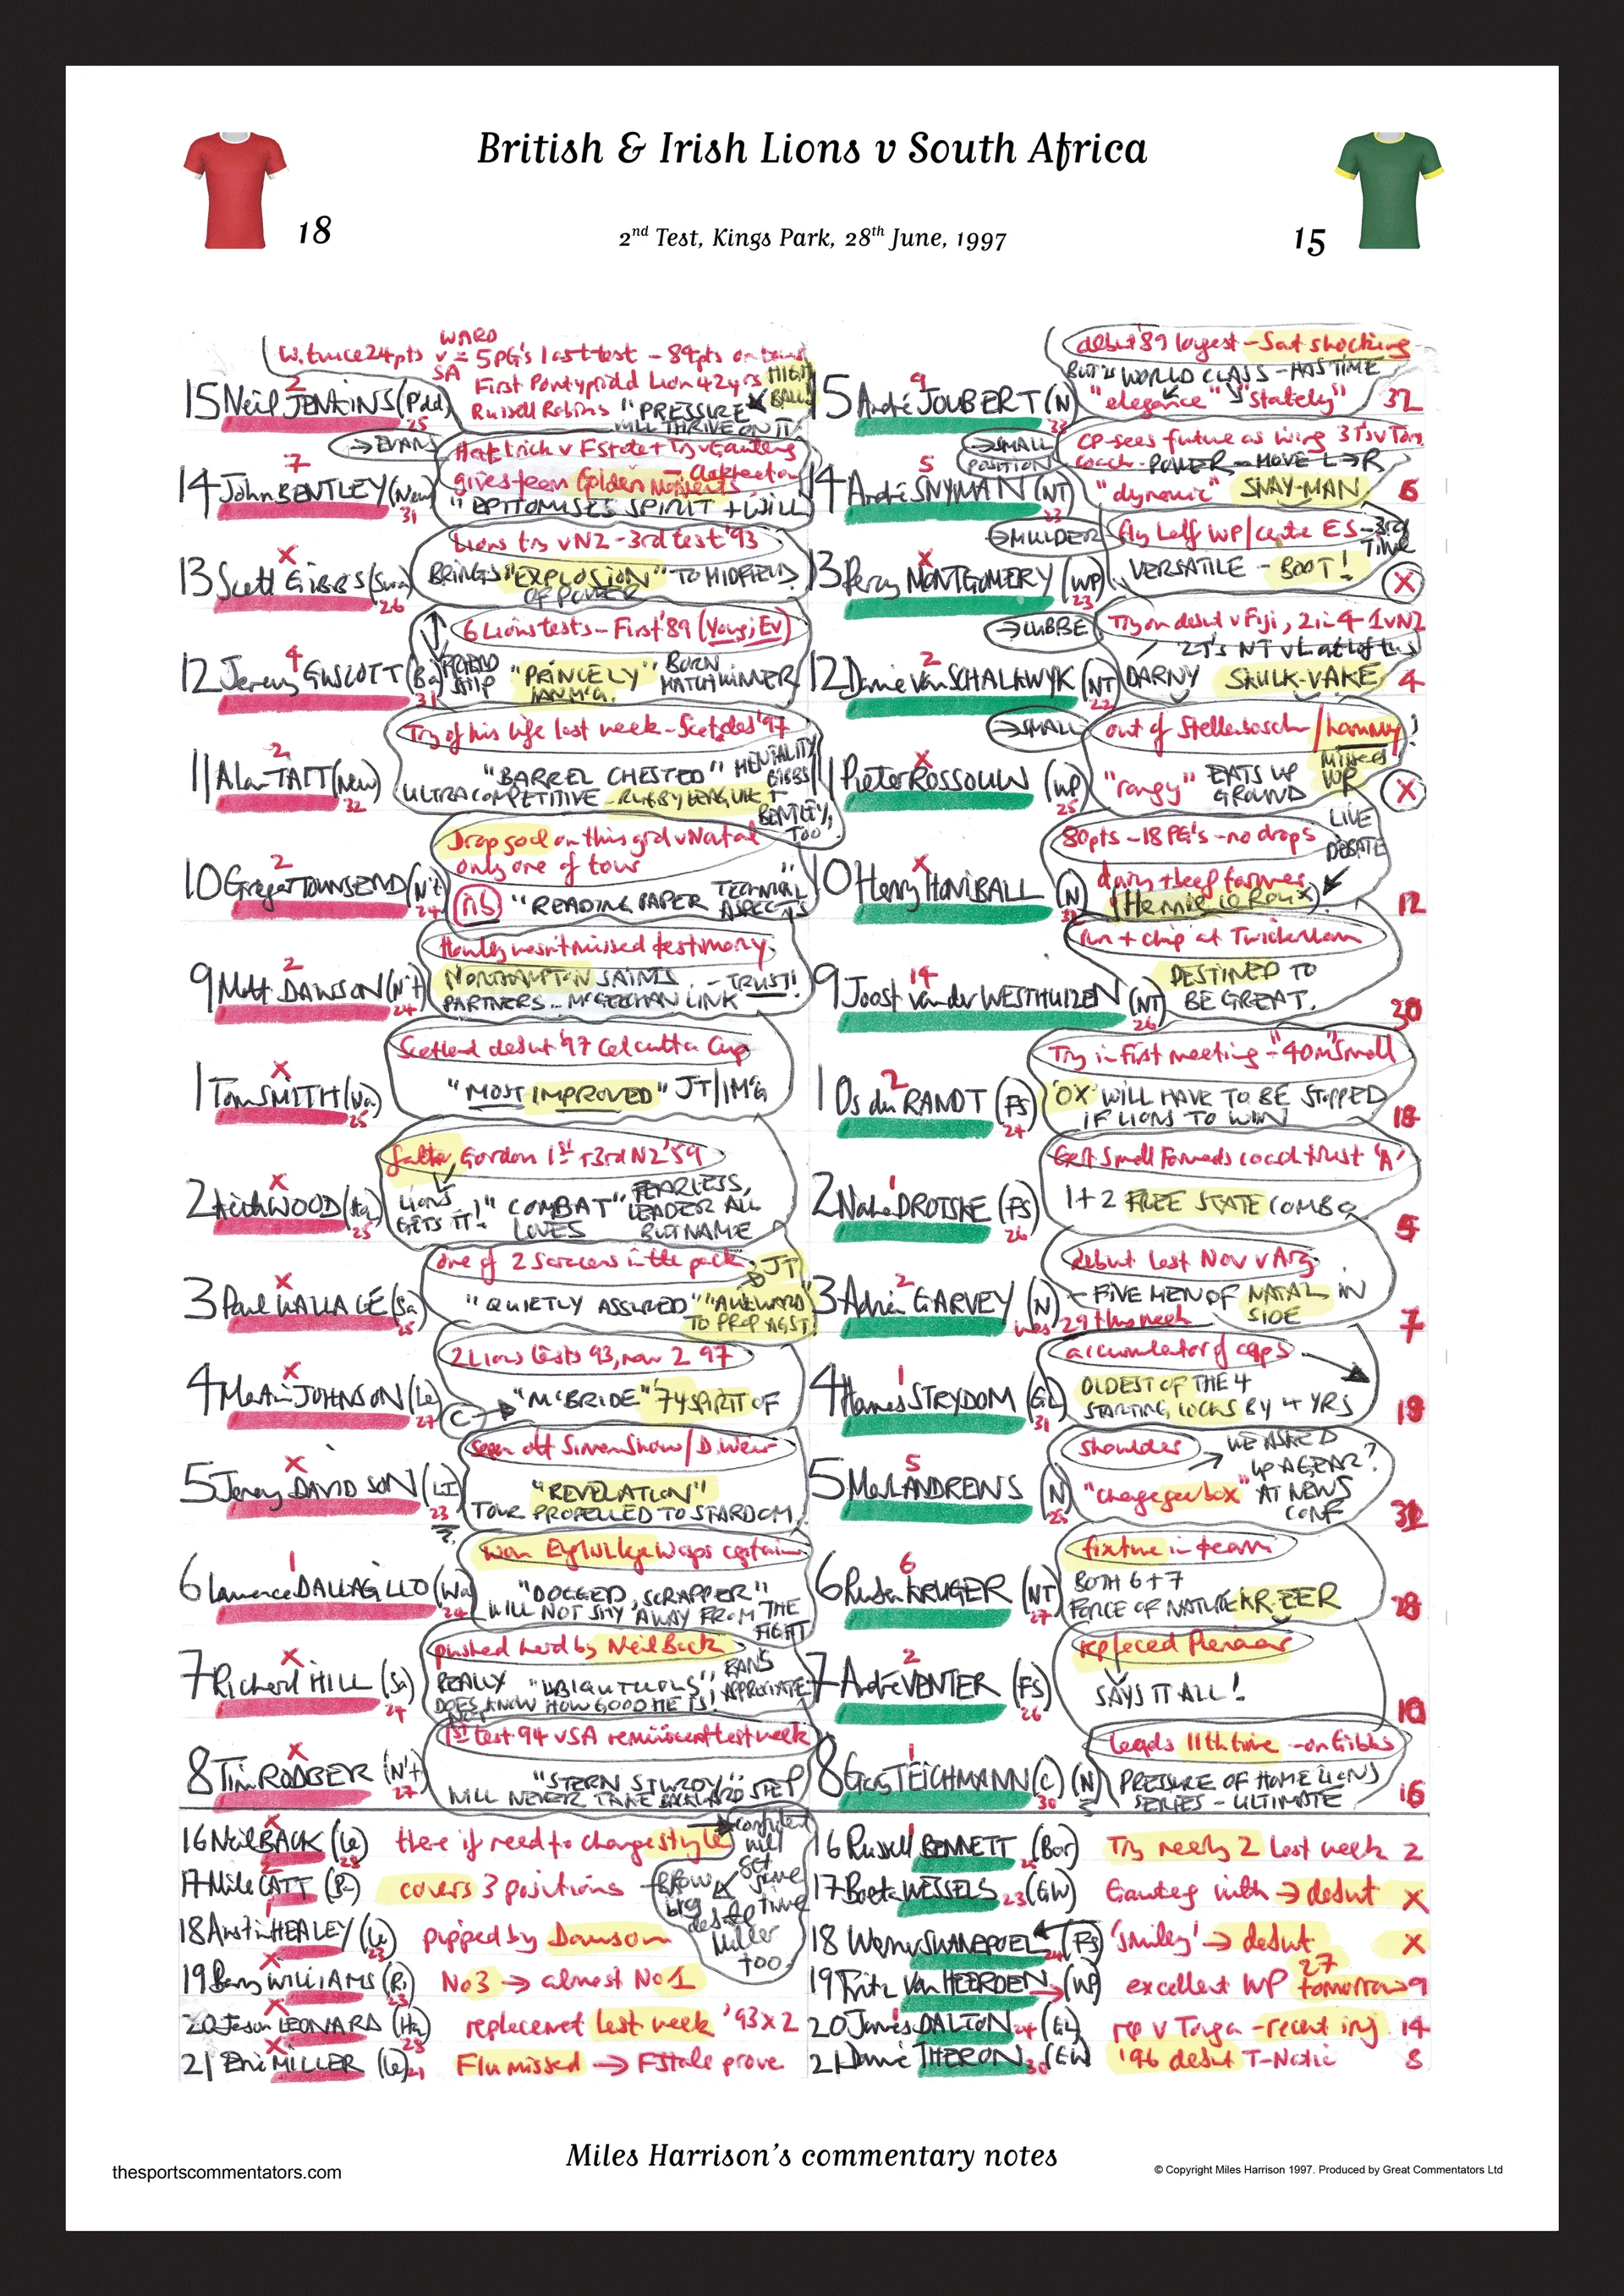 British & Irish Lions v South Africa
18
2nd Test, Kings Park, 28th June, 1997
15
WARD
W. twice 24pts v SA = 5PG's last test - 89pts on tour
First Pontypridd Lion 42yrs
Russell Robins "PRESSURE
WILL THRIVE ON IT
HIGH BALL
2
15 Neil JENKINS (P'dd)
25
→EVANS
Hattrick v FState + Try v Gauteng
gives team Golden Moments
"EPITOMISES SPIRIT + WILL
7
14 John BENTLEY (New)
31
Lions try v NZ - 3rd test '93
BRINGS "EXPLOSION" TO MIDFIELD
OF POWER
X
13 Scott GIBBS (Swa)
26
6 Lions tests - First '89 (Young, Ev)
"PRINCELY" BORN MATCHWINNER
IAN McG.
4
12 Jeremy GUSCOTT (Ba)
31
Try of his life last week - Scot deb '97
"BARREL CHESTED" MENTALITY
ULTRA COMPETITIVE - RUGBY LEAGUE
GIBBS + BENTLEY, TOO
2
11 Alan TAIT (New)
32
Drop goal on this grd v Natal
only one of tour
nb "READING PAPER TECHNICAL ASPECTS"
2
10 Gregor TOWNSEND (N't)
24
Howley wasn't missed testimony
NORTHAMPTON SAINTS - TRUST!
PARTNERS - McGEECHAN LINK
2
9 Matt DAWSON (N't)
24
Scotland debut '97 Calcutta Cup
"MOST IMPROVED" JT/IMG
X
1 Tom SMITH (Wa)
25
father Gordon 1st + 3rd NZ '59
LIONS GETS IT! "COMBAT" LOVES
FEARLESS, LEADER ALL BUT NAME
X
2 Keith WOOD (Ha)
25
one of 2 Saracens in the pack
"QUIETLY ASSURED" "AWKWARD
TO PROP AGST"
JT
X
3 Paul WALLACE (Sa)
25
2 Lions tests 93, now 2 97
C → "McBRIDE" '74 SPIRIT OF
X
4 Martin JOHNSON (Le)
27
seen off Simon Shaw / D. Weir
"REVELATION"
TOUR PROPELLED TO STARDOM
X
5 Jeremy DAVIDSON (LI)
23
won Eng lge Wasps captain
"DOGGED, SCRAPPER"
WILL NOT SHY AWAY FROM THE FIGHT
1
6 Lawrence DALLAGLIO (Wa)
24
pushed hard by Neil Back
REALLY "UBIQUITOUS" FANS APPRECIATE
DOES NOT KNOW HOW GOOD HE IS!
X
7 Richard HILL (Sa)
24
1st test 94 v SA reminiscent last week
"STERN STURDY"
WILL NEVER TAKE BACKWARD STEP
X
8 Tim RODBER (N't)
27
16 Neil BACK (Le) there if need to change style
28
17 Mike CATT (Ba) covers 3 positions
18 Austin HEALEY (Le) pipped by Dawson
23
19 Barry WILLIAMS (Ri) No 3 → almost No 1
23
20 Jason LEONARD (Ha) replacement last week '93 x 2
28
21 Eric MILLER (Le) Flu missed → F State prove
21
confident will get some time
Miller too
debut '89 longest - Sat shocking
BUT IS WORLD CLASS - HAS TIME
"elegance" "stately"
9
15 André JOUBERT (N) 32
33
→SMALL
POSITION
CP - sees future as wing 3Ts v Tonga
coach - POWER - MOVE L→R
"dynamic" SNAY-MAN 6
5
14 André SNYMAN (NT)
23
→MULDER
fly half WP / centre ES - 3rd TIME
VERSATILE - BOOT! X
X
13 Percy MONTGOMERY (WP)
23
→LUBBE
Try on debut v Fiji, 2 in 4 - 1 v NZ
DARNY SKULK-VAKE 4
2
12 Danie van SCHALKWYK (NT)
22
→SMALL
out of Stellenbosch / hammy!
"rangy" EATS UP GROUND MISSED WP X
X
11 Pieter ROSSOUW (WP)
25
80pts - 18 PG's - no drops LIVE DEBATE
dairy + beef farmer
(Hennie le Roux) 12
X
10 Henry HONIBALL (N)
32
run + chip at Twickenham
DESTINED TO
BE GREAT. 30
14
9 Joost van der WESTHUIZEN (NT)
26
Try in first meeting - "40m" Small
'OX' WILL HAVE TO BE STOPPED
IF LIONS TO WIN 18
2
1 Os du RANDT (FS)
24
Gert Small Forwards coach trust 'A'
1+2 FREE STATE COMBO 5
1
2 Naka DROTSKE (FS)
26
debut last Nov v Arg
- FIVE MEN OF NATAL IN SIDE 7
2
3 Adrian GARVEY (N)
was 29 this week
accumulator of caps
OLDEST OF THE 4
STARTING LOCKS BY 4 YRS 19
1
4 Hannes STRYDOM (GL)
31
shoulder → WE ASKED
UP A GEAR?
"change gearbox" AT NEWS CONF
5
5 Mark ANDREWS (N)
25
fixture in team
BOTH 6+7
FORCE OF NATURE KR-EER
6
6 Ruben KRUGER (NT)
27
replaced Pienaar
SAYS IT ALL! 10
2
7 André VENTER (FS)
26
leads 11th time - on Gibbs
PRESSURE OF HOME LIONS
SERIES - ULTIMATE 16
1
8 Gary TEICHMANN (C) (N)
30
16 Russell BENNETT (Bor) Try nearly 2 last week 2
17 Boeta WESSELS 23 (GW) Gauteng with → debut X
18 Werner SWANEPOEL (FS) 'smiley' → debut X
19 Fritz Van HEERDEN → (WP) excellent WP 27 tomorrow 9
20 James DALTON 24 (GL) rep v Tonga - recent inj 14
21 Dawie THERON 30 (GW) '96 debut T-Natic 8
Miles Harrison's commentary notes
thesportscommentators.com
© Copyright Miles Harrison 1997. Produced by Great Commentators Ltd